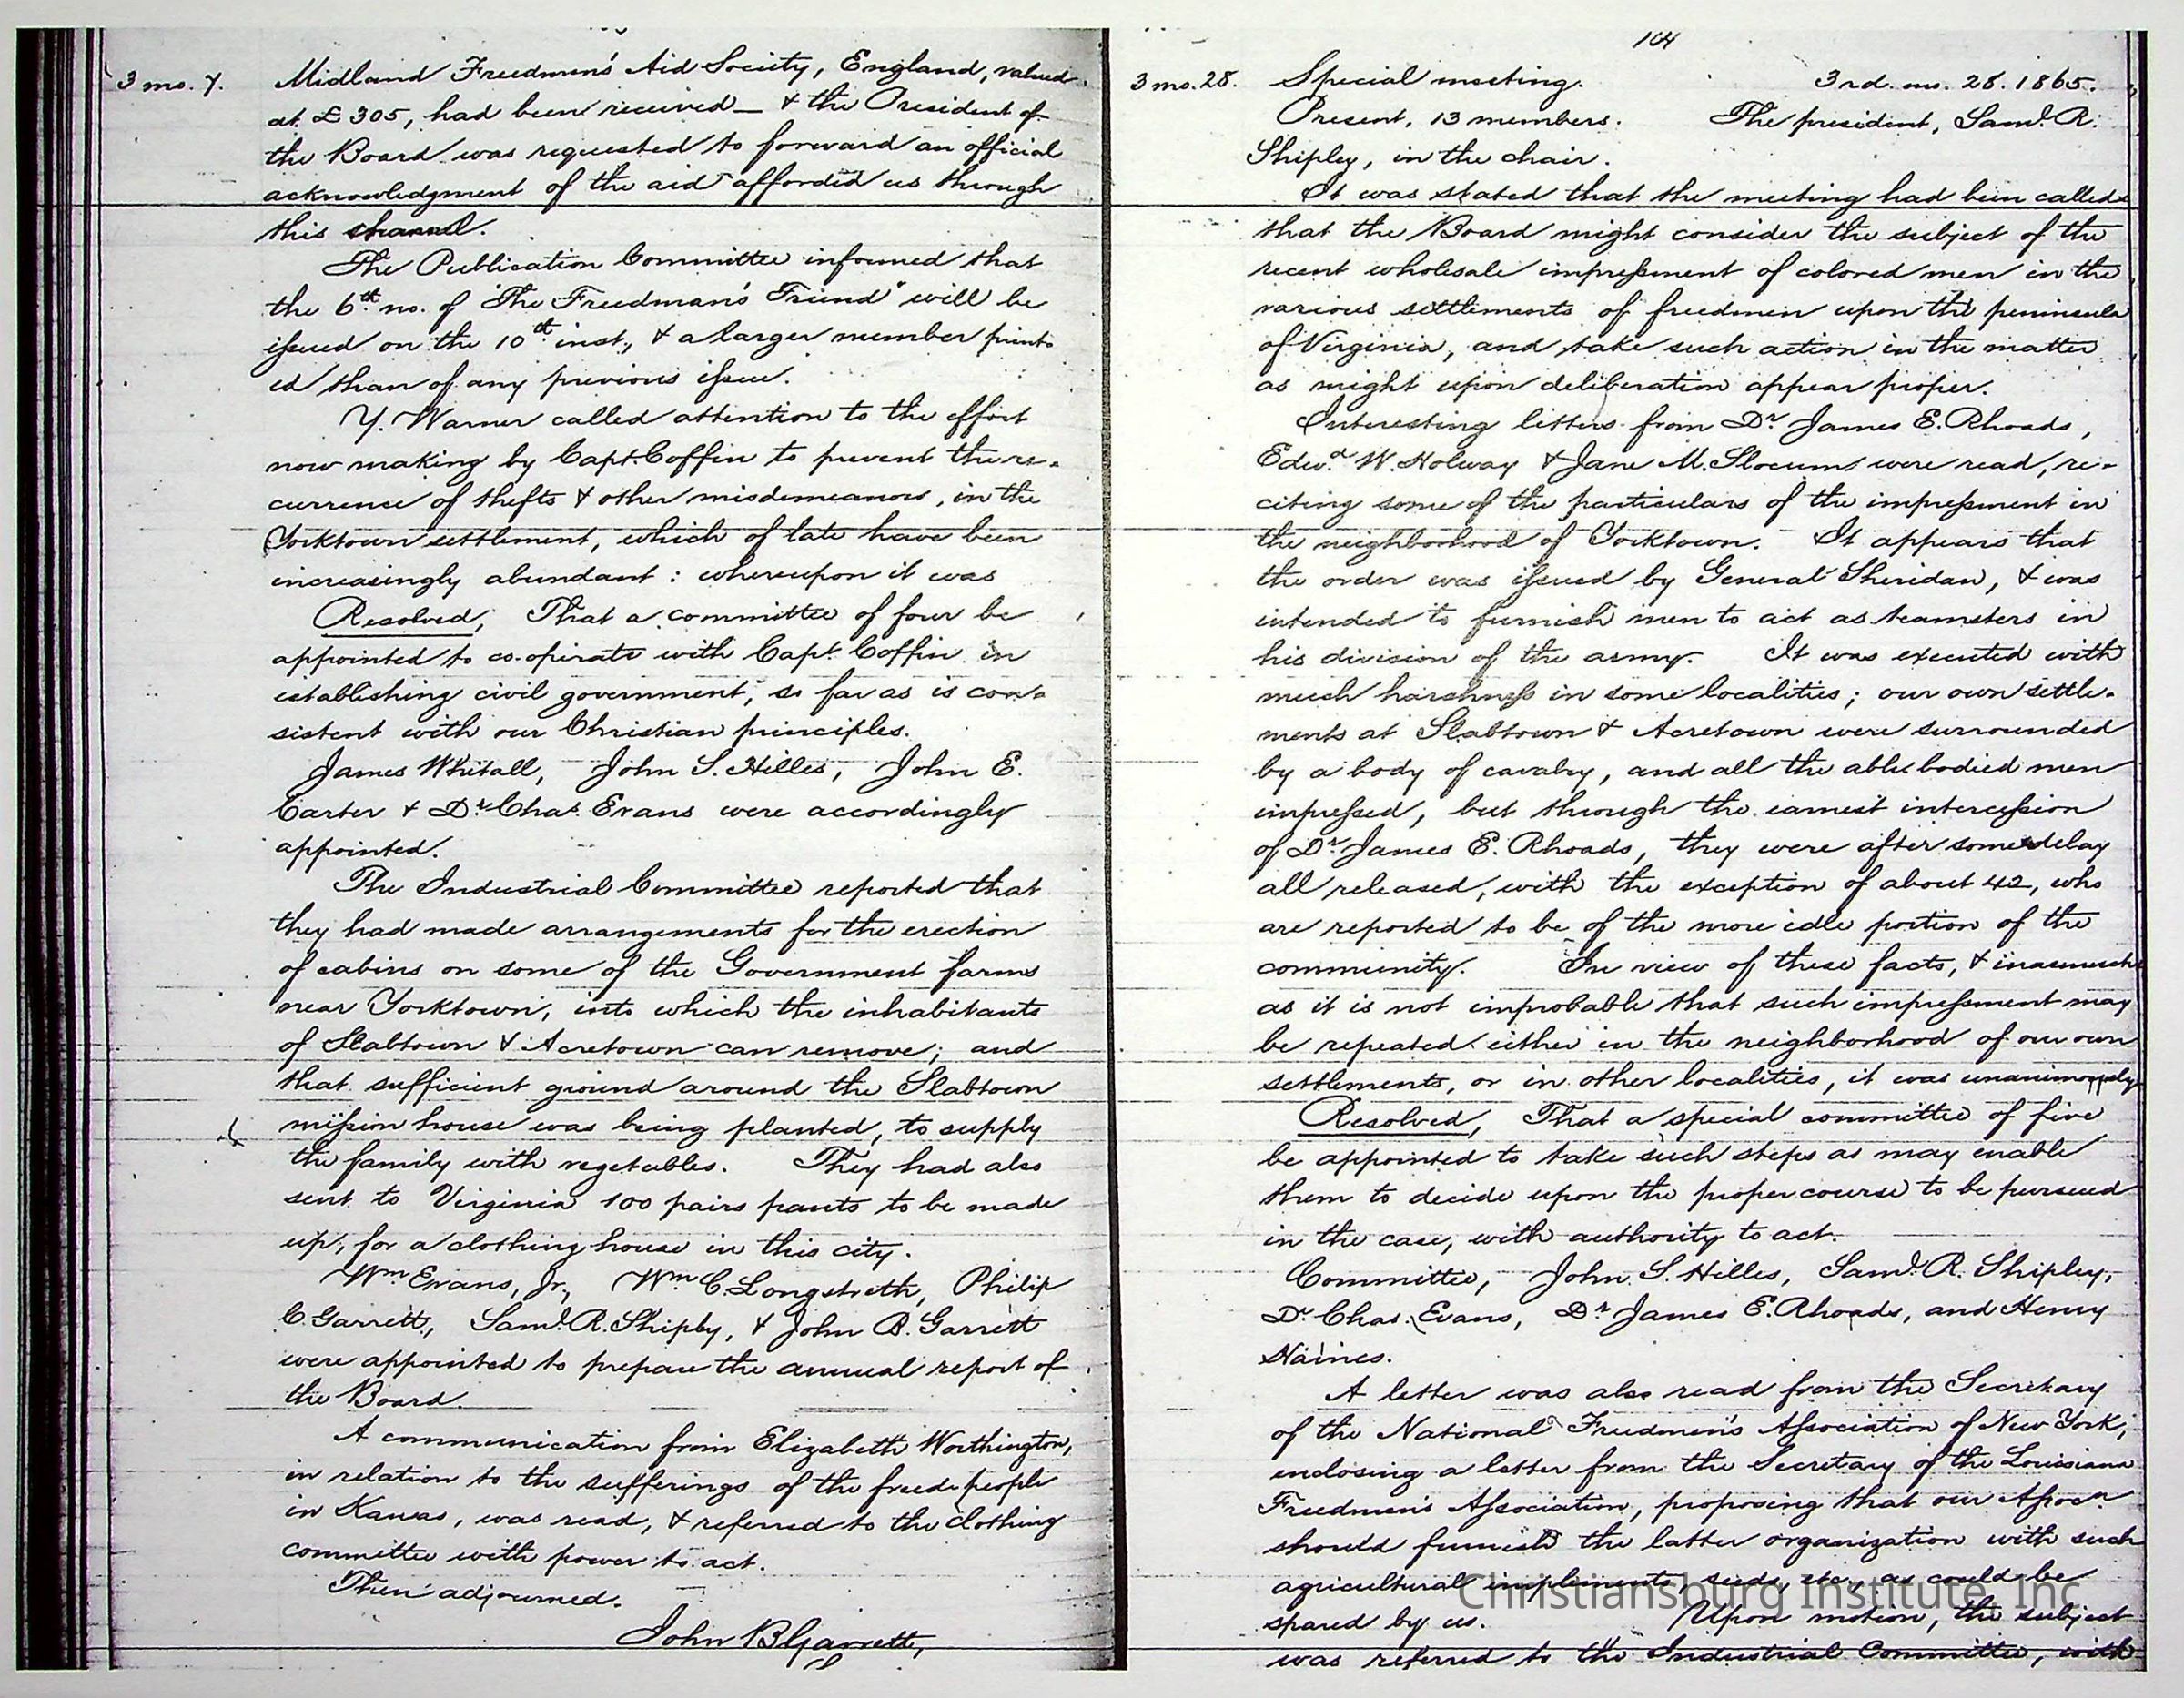 3 mo. 7.
Midland Freedmen's Aid Society, England, valued
at £305, had been received — & the President of
the Board was requested to forward an official
acknowledgment of the aid afforded us through
this channel.
The Publication Committee informed that
the 6th no. of "The Freedman's Friend" will be
issued on the 10th inst., & a larger number print-
ed than of any previous issue.
Y. Warner called attention to the effort
now making by Capt. Coffin to prevent the re-
currence of thefts & other misdemeanors, in the
Yorktown settlement, which of late have been
increasingly abundant: whereupon it was
Resolved, That a committee of four be
appointed to co-operate with Capt. Coffin in
establishing civil government, so far as is con-
sistent with our Christian principles.
James Whitall, John S. Hilles, John E.
Carter & Dr. Chas. Evans were accordingly
appointed.
The Industrial Committee reported that
they had made arrangements for the erection
of cabins on some of the Government farms
near Yorktown, into which the inhabitants
of Slabtown & Acretown can remove; and
that sufficient ground around the Slabtown
mission house was being planted, to supply
the family with vegetables. They had also
sent to Virginia 100 pairs pants to be made
up, for a clothing house in this city.
Wm Evans, Jr., Wm C. Longstreth, Philip
C. Garrett, Saml. R. Shipley, & John B. Garrett
were appointed to prepare the annual report of
the Board.
A communication from Elizabeth Worthington,
in relation to the sufferings of the freedpeople
in Kansas, was read, & referred to the clothing
committee with power to act.
Then adjourned.
John B Garrett,
104
3 mo. 28.
Special meeting. 3rd. mo. 28. 1865.
Present, 13 members. The president, Saml. R.
Shipley, in the chair.
It was stated that the meeting had been called
that the Board might consider the subject of the
recent wholesale impressment of colored men in the
various settlements of freedmen upon the peninsula
of Virginia, and take such action in the matter
as might upon deliberation appear proper.
Interesting letters from Dr. James E. Rhoads,
Edwd. W. Holway & Jane M. Slocum were read, re-
citing some of the particulars of the impressment in
the neighborhood of Yorktown. It appears that
the order was issued by General Sheridan, & was
intended to furnish men to act as teamsters in
his division of the army. It was executed with
much harshness in some localities; our own settle-
ments at Slabtown & Acretown were surrounded
by a body of cavalry, and all the able bodied men
impressed, but through the earnest intercession
of Dr. James E. Rhoads, they were after some delay
all released, with the exception of about 42, who
are reported to be of the more idle portion of the
community. In view of these facts, & inasmuch
as it is not improbable that such impressment may
be repeated either in the neighborhood of our own
settlements, or in other localities, it was unanimously
Resolved, That a special committee of five
be appointed to take such steps as may enable
them to decide upon the proper course to be pursued
in the case, with authority to act.
Committee, John S. Hilles, Saml. R. Shipley,
Dr. Chas. Evans, Dr. James E. Rhoads, and Henry
Haines.
A letter was also read from the Secretary
of the National Freedmen's Association of New York,
enclosing a letter from the Secretary of the Louisiana
Freedmen's Association, proposing that our Assocn
should furnish the latter organization with such
agricultural implements, seeds, etc., as could be
Christiansburg Institute, Inc.
spared by us. Upon motion, the subject
was referred to the Industrial Committee, with